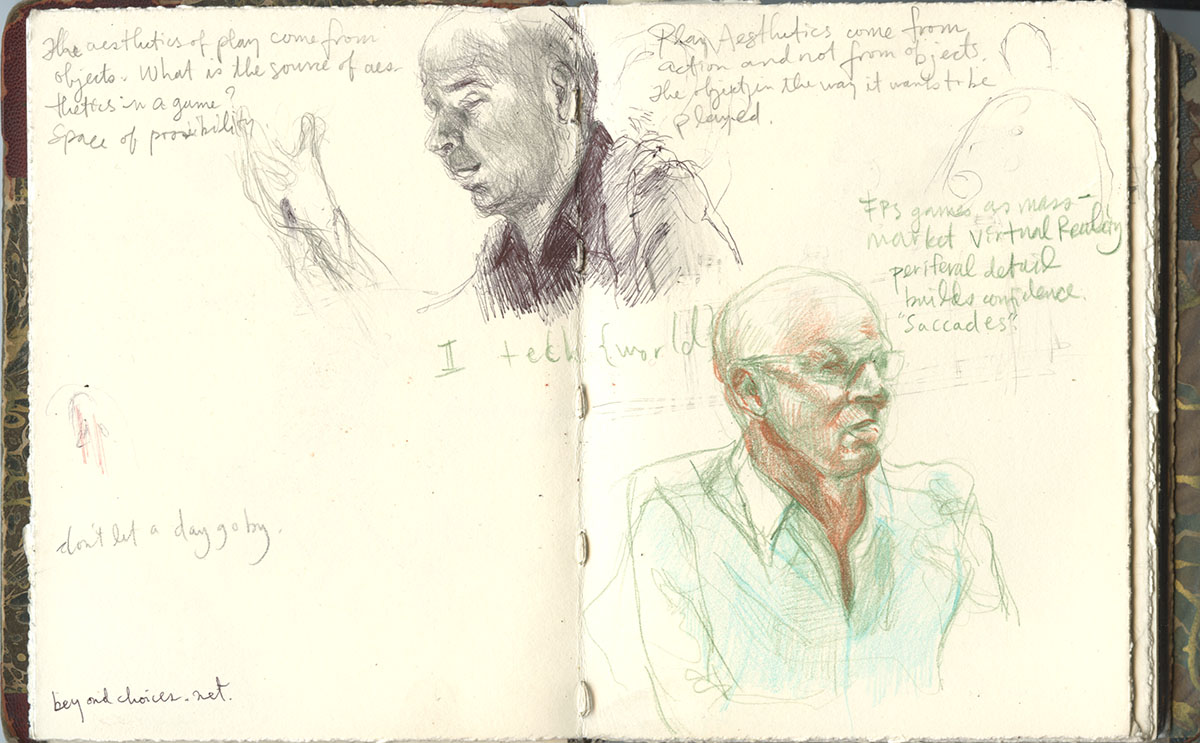 The aesthetics of play come from
objects. What is the source of aes-
thetics in a game?
Space of possibility
Play Aesthetics come from
action and not from objects.
The object in the way it wants to be
played.
FPS games as mass-
market Virtual Reality
periferal detail
builds confidence.
"Saccades".
II tech {world}
don't let a day go by.
beyondchoices.net.